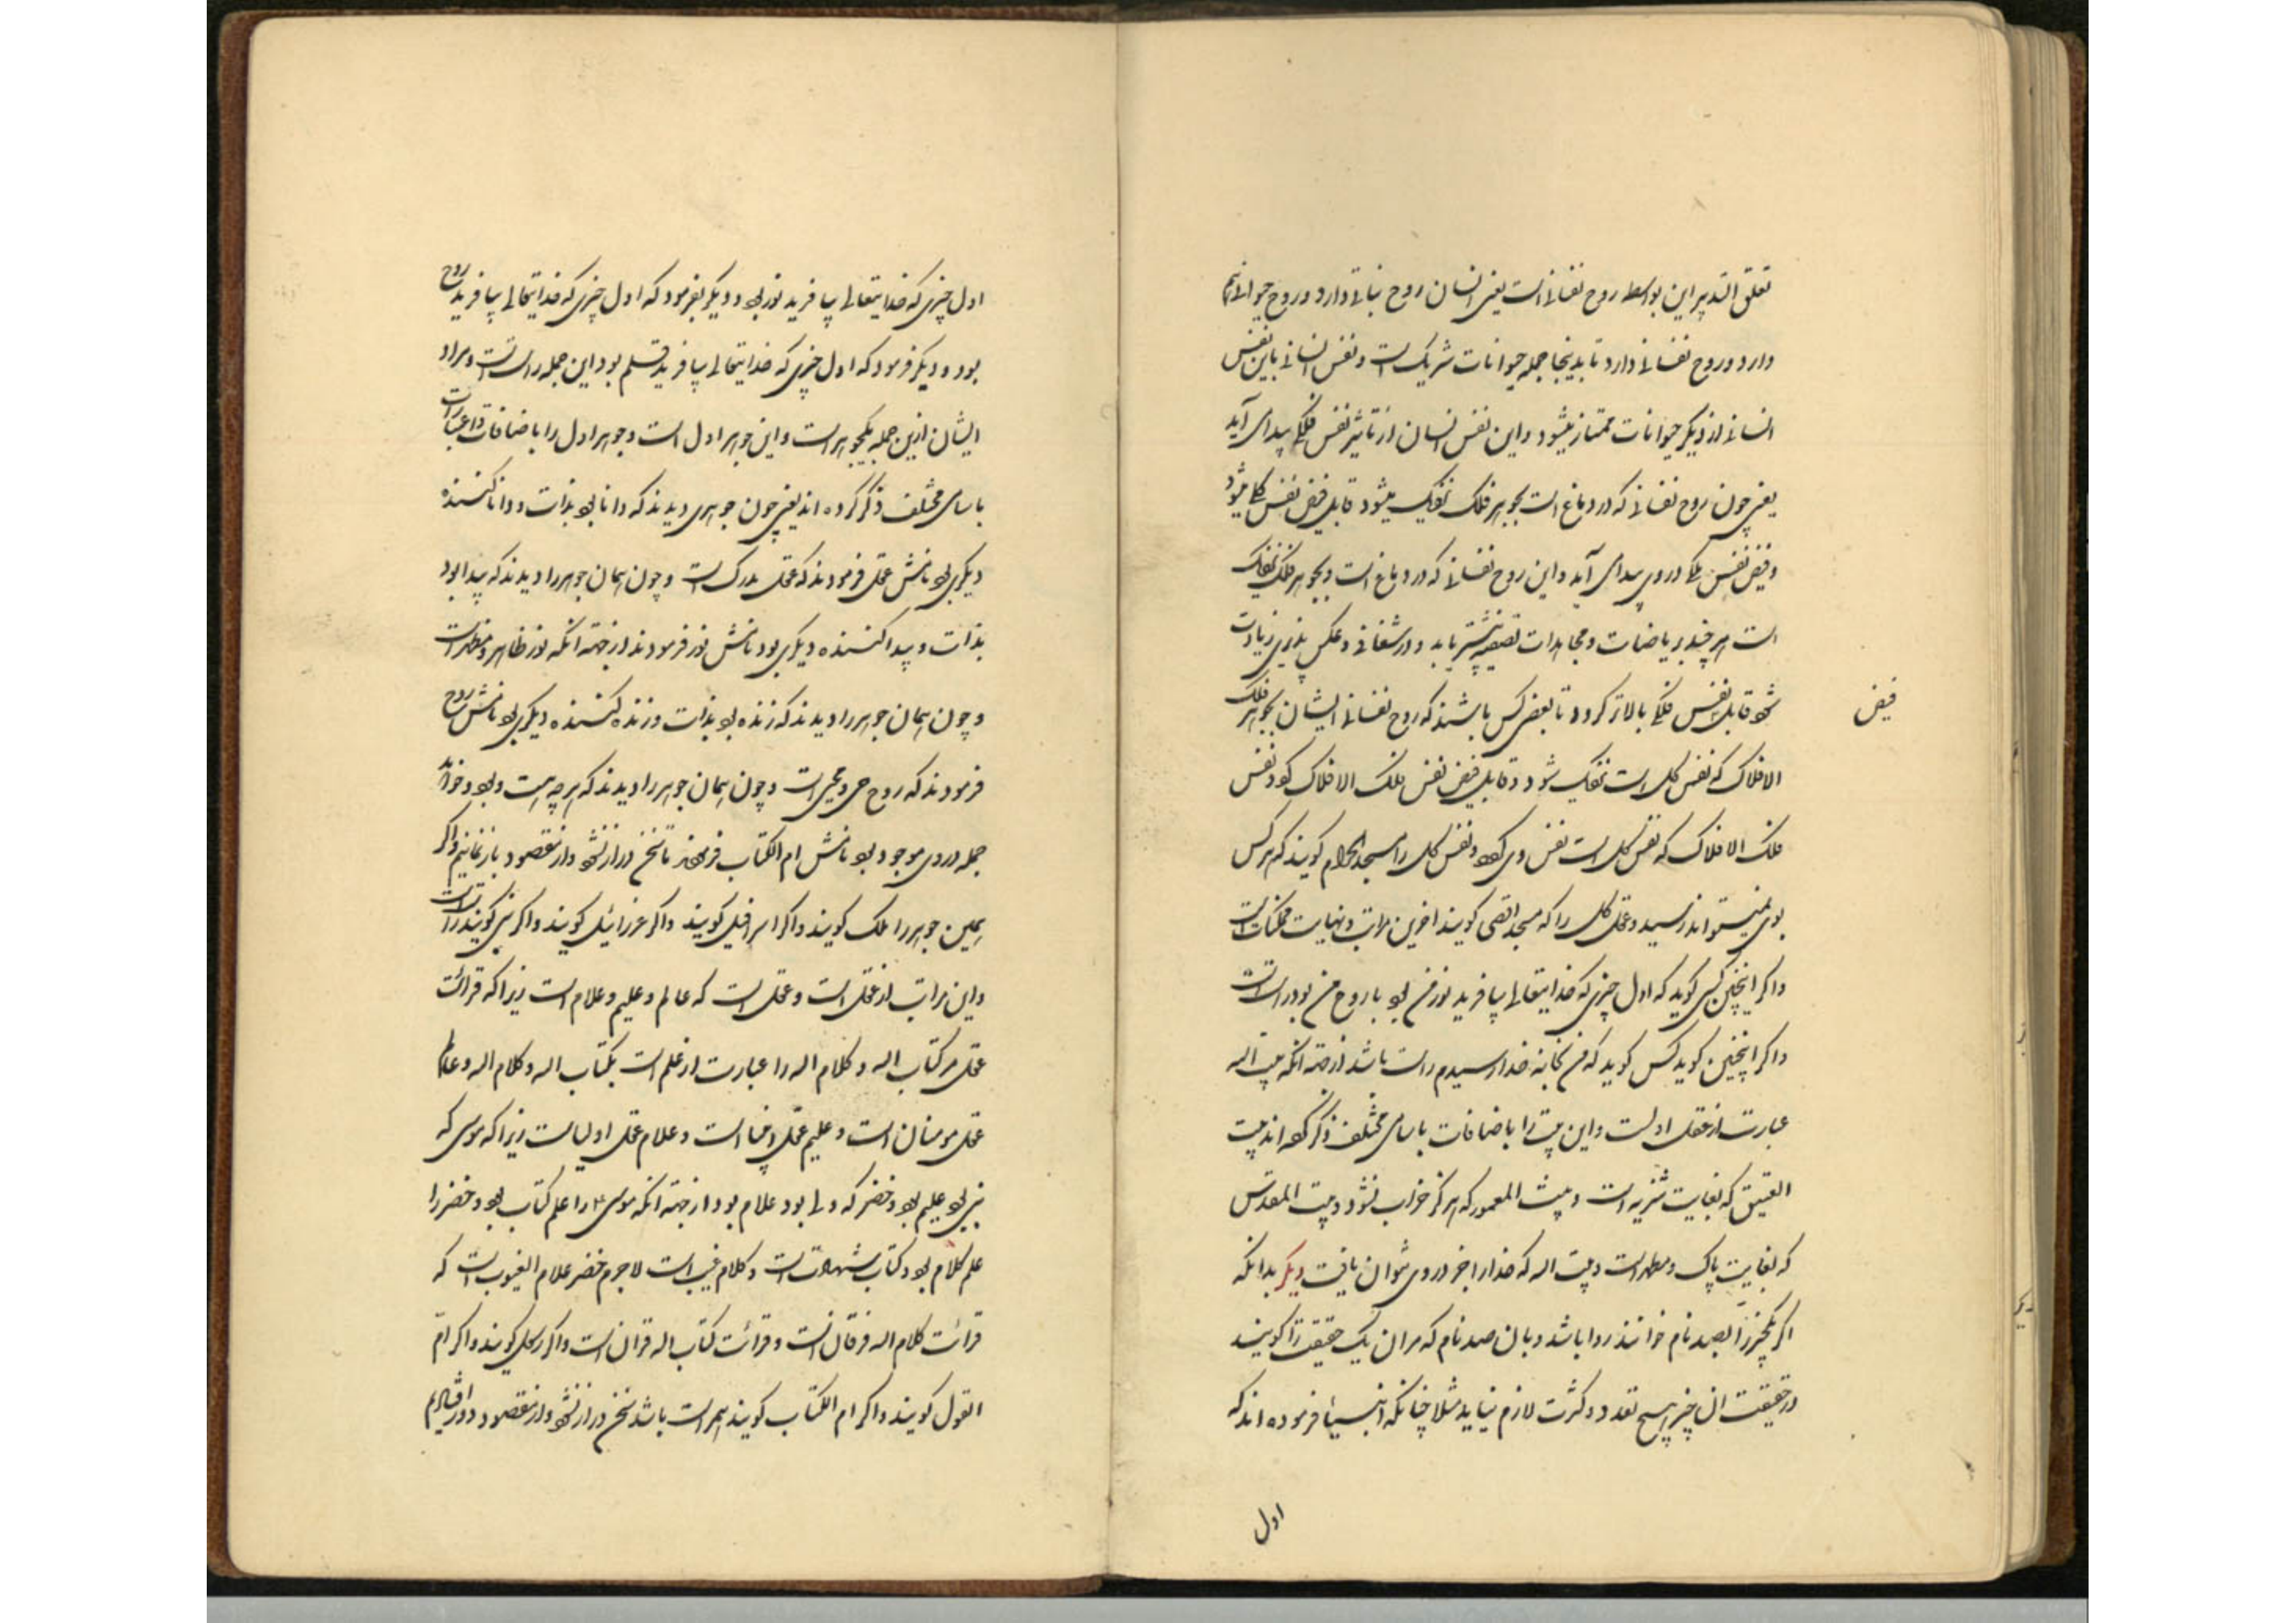 تعلق التدبیر این بواسطه روح نفسانی است یعنی انسان روح نباتی دارد و روح حیوانی هم
دارد و روح نفسانی دارد تا بدینجا جمله حیوانات شریک است و نفس انسانی باین نفس
انسانی از دیگر حیوانات ممتاز میشود و این نفس انسان از تاثیر نفس فلکی پیدا می آید
یعنی چون روح نفسانی که در دماغ است بجوهر فلک نزدیک میشود قابل فیض نفس کلی میشود
و فیض نفس فلکی در وی پیدا می آید و این روح نفسانی که در دماغ است و بجوهر فلک نزدیک
است هر چند بریاضات و مجاهدات تصفیه بیشتر یابد و در شفافی و عکس پذیری زیادت
شود قابل نفس فلکی بالاتر گردد تا بعضی کس باشند که روح نفسانی ایشان بجوهر فلک
فیض
الافلاک که نفس کل است نزدیک شود و قابل فیض نفس فلک الافلاک گردد نفس
فلک الافلاک که نفس کل است نفس وی گردد و نفس کل را مسجد الحرام گویند که هر کس
بوی نمیتواند رسید و عقل کل را که مسجد اقصی گویند آخرین مراتب و نهایت ممکنات است
و اگر اینچنین کسی گوید که اول چیزی که خدایتعالی بیافرید نور من بود یا روح من بود راست است
و اگر اینچنین گوید کس گوید که من بخانه خدا رسیدم راست باشد از جهة انکه بیت اله
عبارت از عقل اولست و این بیت را باضافات باسامی مختلف ذکر کرده اند بیت
العتیق که بغایت شریف است و بیت المعمور که هرگز خراب نشود و بیت المقدس
که بغایت پاک و مطهر است و بیت اله که خدا را جز در وی نتوان یافت دیگر بدانکه
اگر یکچیز را بصد نام خوانند روا باشد و بان صد نام که مران یک حقیقت را گویند
در حقیقت ان چیز هیچ تعدد و کثرت لازم نیاید مثلا چنانکه انبیا فرموده اند که
اول
اول چیزی که خدایتعالی بیافرید نور بود و دیگر بفرمود که اول چیزی که خدایتعالی بیافرید روح
بود و دیگر فرمود که اول چیزی که خدایتعالی بیافرید قلم بود این جمله راست است و مراد
ایشان ازین جمله یکجوهر است و این جوهر اول است و جوهر اول را باضافات و اعتبارات
باسامی مختلف ذکر کرده اند یعنی چون جوهری دیدند که دانا بود بذات و دانا کننده
دیگری بود نامش عقل فرمودند که عقل مدرک است و چون همان جوهر را دیدند که پیدا بود
بذات و پیدا کننده دیگری بود نامش نور فرمودند از جهة انکه نور ظاهر و مظهر است
و چون همان جوهر را دیدند که زنده بود بذات و زنده کننده دیگری بود نامش روح
فرمودند که روح حی و محیی است و چون همان جوهر را دیدند که هر چه هست و بود و خواهد
جمله در وی موجود بود نامش ام الکتاب فرمودند تا سخن دراز نشود و از مقصود باز نمانیم و اگر
همین جوهر را ملک گویند و اگر اسرافیل گویند و اگر عزرائیل گویند و اگر نبی گویند راست است
و این مراتب از عقل است و عقل است که عالم و علیم و علام است زیرا که قرائت
عقل مر کتاب اله و کلام اله را عبارت از علم است بکتاب اله و کلام اله و عالم
عقل مومنان است و علیم عقل انبیا است و علام عقل اولیاست زیرا که موسی که
نبی بود علیم بود و خضر که ولی بود علام بود از جهة انکه موسی را علم کتاب بود و خضر را
علم کلام بود و کتاب شهادت است و کلام غیب است لاجرم خضر علام الغیوب است که
قرائت کلام اله فرقان است و قرائت کتاب اله قران است و اگر گویند و اگر ام
القول گویند و اگر ام الکتاب گویند همه راست باشد سخن دراز نشود و از مقصود دور نیفتیم